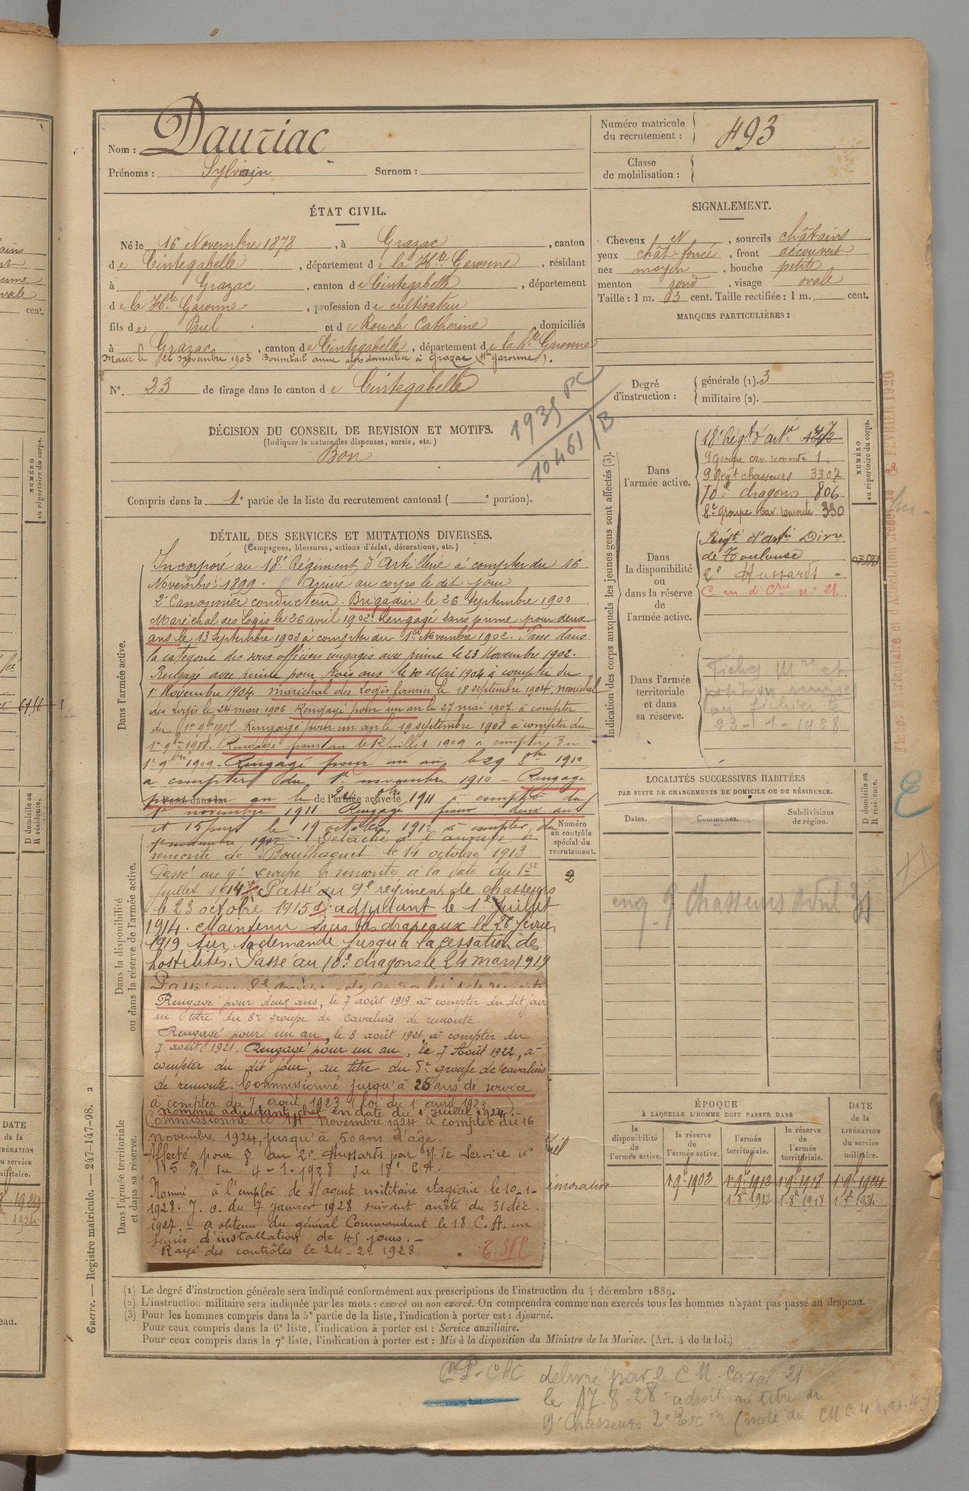 Nom : Dauriac
Prénoms : Sylvain Surnom :
Numéro matricule
du recrutement : 493
Classe
de mobilisation :
ÉTAT CIVIL.
Né le 16 Novembre 1878, à Grazac, canton
de Cintegabelle, département de la Hte Garonne, résidant
à Grazac, canton de Cintegabelle, département
de la Hte Garonne, profession de cultivateur
fils de Paul et de Rouch Catherine, domiciliés
à Grazac, canton de Cintegabelle, département de la Hte Garonne
Marié le 26 novembre 1903 domicilié à Grazac (Hte Garonne).
N° 23 de tirage dans le canton de Cintegabelle
SIGNALEMENT.
Cheveux N, sourcils châtains
yeux chât foncé, front découvert
nez moyen, bouche petite
menton rond, visage ovale
Taille : 1 m. 63 cent. Taille rectifiée : 1 m. cent.
MARQUES PARTICULIÈRES :
Degré
d'instruction :
générale (1). 3
militaire (2).
DÉCISION DU CONSEIL DE REVISION ET MOTIFS.
(Indiquer la nature des dispenses, sursis, etc.)
Bon
1935 PC
10461/B
Compris dans la 1e partie de la liste du recrutement cantonal ( e portion).
DÉTAIL DES SERVICES ET MUTATIONS DIVERSES.
(Campagnes, blessures, actions d'éclat, décorations, etc.)
Dans l'armée active.
Incorporé au 18e Régiment d'Artillerie à compter du 16
Novembre 1899. Arrivé au corps le dit jour
2e Canonnier conducteur. Brigadier le 26 septembre 1900
Maréchal des Logis le 26 avril 1902. Rengagé sans prime pour deux
ans le 13 septembre 1902 à compter du 1er Novembre 1902. Passé dans
la catégorie des sous officiers rengagés avec prime le 23 Novembre 1902.
Rengagé avec prime pour trois ans le 20 Mai 1904 à compter du
1er Novembre 1904. maréchal des Logis fourrier le 18 septembre 1904, maréchal
des Logis le 24 mars 1906 Rengagé pour un an le 27 mai 1907 à compter
du 1er 9bre 1907. Rengagé pour un an le 19 septembre 1908 à compter du
1er 9bre 1908. Rengagé pour un an le 12 juillet 1909 à compter du
1er 9bre 1909. Rengagé pour un an le 29 8bre 1910
à compter du 1er novembre 1910 - Rengagé
pour un an le 8bre 1911 à compter du
1er novembre 1911 Rengagé pour deux ans
et 15 jours le 19 octobre 1912 à compter du
1er novembre 1912. Détaché à l'annexe de
remonte de le 14 octobre 1913
Passé au 9e Groupe de remonte à la date du 1er
juillet 1914. Passé au 9e régiment de chasseurs
le 23 octobre 1915. adjudant le 1er juillet
1914. Maintenu sous les drapeaux le 26 février
1919 sur sa demande jusqu'à la cessation des
hostilités. Passé au 10e dragons le 24 mars 1919
Dans la disponibilité
ou dans la réserve de l'armée active.
Rengagé pour deux ans, le 7 août 1919 à compter du dit jour
au titre du 8e groupe de cavaliers de remonte.
Rengagé pour un an, le 8 août 1921, à compter du
7 août 1921. Rengagé pour un an, le 7 Août 1922, à
compter du dit jour, au titre du 8e groupe de cavaliers
de remonte. Commissionné jusqu'à 25 ans de service
à compter du 7 août 1923 (loi du 1 avril 1923)
nommé adjudant chef en date du 1 juillet 1924.
Commissionné le novembre 1924 à compter du 16
novembre 1924, jusqu'à 50 ans d'age.
Affecté pour au 2e Hussards par Nte de Service n°
du 4-1-1928 du 18e C.A.
Nommé à l'emploi de s/agent militaire stagiaire le 10-1-
1928. J. O. du 7 janvier 1928 suivant arrêté du 31 déc.
1927. - a obtenu du général Commandant le 18 C.A. un
sursis d'installation de 45 jours. -
Rayé des contrôles le 24-2-1928
Dans l'armée territoriale
et dans sa réserve.
Numéro
au contrôle
spécial du
recrutement.
2
Indication des corps auxquels les jeunes gens sont affectés (3).
Dans
l'armée active.
18e Régt d'artie
9 groupe cav. remonte 1
9 Régt chasseurs 3302
10e dragons 806
8e groupe cav. remonte 330
NUMÉRO
au répertoire du corps.
Dans
la disponibilité
ou
dans la réserve
de
l'armée active.
Régt d'artie Divre
de Toulouse
2e Hussards
C. m. de Cie n° 21.
Dans l'armée
territoriale
et dans
sa réserve.
23-1-1928
LOCALITÉS SUCCESSIVES HABITÉES
PAR SUITE DE CHANGEMENTS DE DOMICILE OU DE RÉSIDENCE.
Dates.
Communes.
Subdivisions
de région.
D domicile ou
R résidence.
9 Chasseurs
ÉPOQUE
À LAQUELLE L'HOMME DOIT PASSER DANS
la
disponibilité
de
l'armée active.
la réserve
de
l'armée active.
l'armée
territoriale.
la réserve
de
l'armée
territoriale.
DATE
de la
LIBÉRATION
du service
militaire.
1er 9bre 1902
1er 9bre 1912
1er 9bre 1918
1er 9bre 1924
1er 8bre 1912
1er 8bre 1918
Guerre. — Registre matricule. — 247-147-98.
(1) Le degré d'instruction générale sera indiqué conformément aux prescriptions de l'instruction du 4 décembre 1889.
(2) L'instruction militaire sera indiquée par les mots : exercé ou non exercé. On comprendra comme non exercés tous les hommes n'ayant pas passé au drapeau.
(3) Pour les hommes compris dans la 5e partie de la liste, l'indication à porter est : Ajourné.
Pour ceux compris dans la 6e liste, l'indication à porter est : Service auxiliaire.
Pour ceux compris dans la 7e liste, l'indication à porter est : Mis à la disposition du Ministre de la Marine. (Art. 4 de la loi.)
délivré par le C.M. Caval 21
le 17-8-28 au titre du
9e Chasseurs